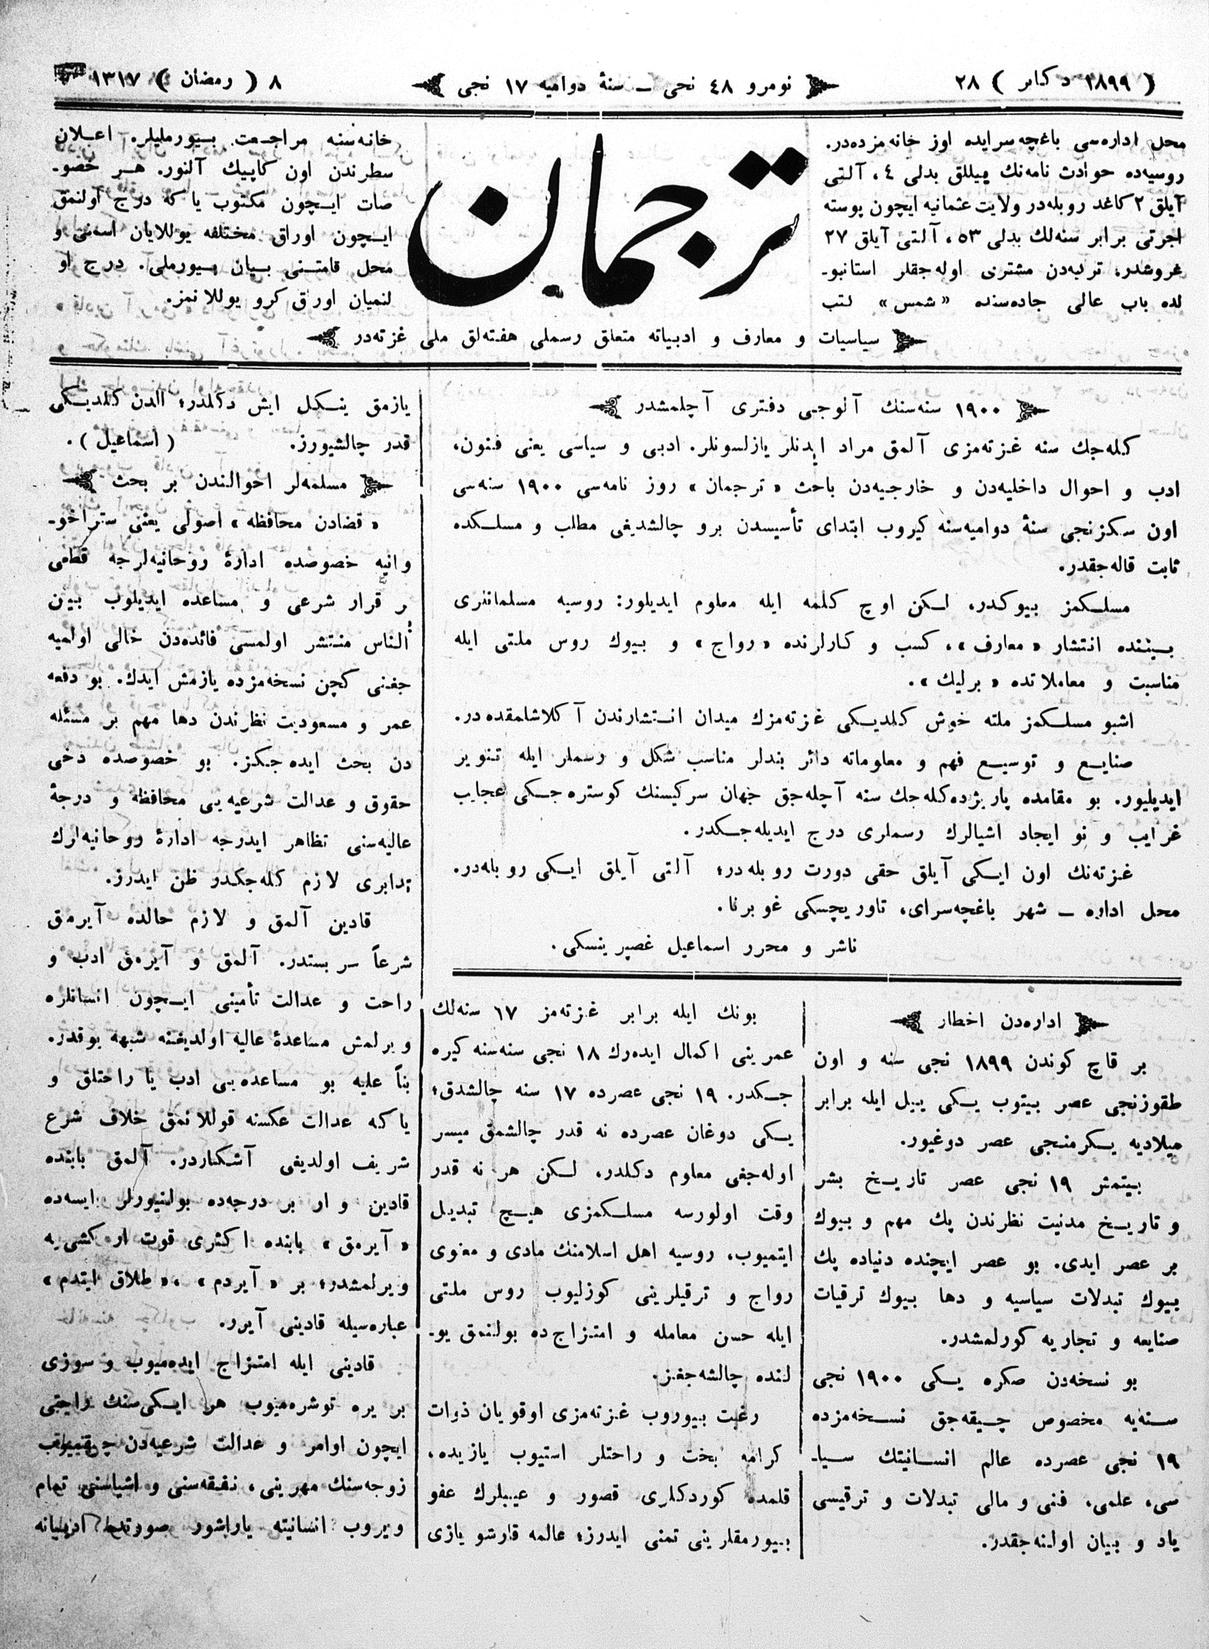 ( ١٨٩٩ دكابر ) ٢٨
نومرو ٤٨ نجی ــ سنۀ دواميه ١٧ نجی
٨ ( رمضان ) ١٣١٧
محل اداره‌سی باغچه‌سرايده اوز خانه‌مزده‌در.
روسيه‌ده حوادث نامه‌نك ييللق بدلی ٤، آلتی
آيلق ٢ كاغد روبله‌در ولايت عثمانيه ايچون پوسته
اجرتی برابر سنه‌لك بدلی ٥٣، آلتی آيلق ٢٧
غروشدر، تركيه‌دن مشتری اوله‌جقلر استانبو۔
لده باب عالی جاده‌سنده «شمس» كتب
ترجمان
خانه‌سنه مراجعت بيورمليلر. اعلان
سطرندن اون كاپيك آلنور. هر خصو۔
صات ايچون مكتوب ياكه درج اولنمق
ايچون اوراق مختلفه يوللايان اسمنی و
محل قامتنی بيان بيورملی. درج او
لنميان اوراق كرو يوللانمز.
سياسيات و معارف و ادبياته متعلق رسملی هفته‌لق ملی غزته‌در
١٩٠٠ سنه‌سنك آلوجی دفتری آچلمشدر
كله‌جك سنه غزته‌مزی آلمق مراد ايدنلر يازلسونلر. ادبی و سياسی يعنی فنون،
ادب و احوال داخليه‌دن و خارجيه‌دن باحث «ترجمان» روز نامه‌سی ١٩٠٠ سنه‌سی
اون سكزنجی سنۀ دواميه‌سنه كيروب ابتدای تأسيسدن برو چالشديغی مطلب و مسلكده
ثابت قاله‌جقدر.
مسلكمز بيوكدر، لكن اوچ كلمه ايله معلوم ايديلور: روسيه مسلمانلری
بيننده انتشار «معارف»، كسب و كارلرنده «رواج» و بيوك روس ملتی ايله
مناسبت و معاملاتده «برلك».
اشبو مسلكمز ملته خوش كلديكی غزته‌مزك ميدان انتشارندن آكلاشلمقده‌در.
صنايع و توسيع فهم و معلوماته دائر بندلر مناسب شكل و رسملر ايله تنوير
ايديليور. بو مقامده پاريژده كله‌جك سنه آچله‌جق جهان سركيسنك كوستره‌جكی عجايب
غرايب و نو ايجاد اشيالرك رسملری درج ايديله‌جكدر.
غزته‌نك اون ايكی آيلق حقی دورت روبله‌در؛ آلتی آيلق ايكی روبله‌در.
محل اداره ــ شهر باغچه‌سرای، تاوريچسكی غوبرنا.
ناشر و محرر اسماعيل غصپرينسكی.
اداره‌دن اخطار
بر قاچ كوندن ١٨٩٩ نجی سنه و اون
طقوزنجی عصر بيتوب يكی ييل ايله برابر
ميلاديه يكرمنجی عصر دوغيور.
بيتمش ١٩ نجی عصر تاريخ بشر
و تاريخ مدنيت نظرندن پك مهم و بيوك
بر عصر ايدی. بو عصر ايچنده دنياده پك
بيوك تبدلات سياسيه و دها بيوك ترقيات
صنايعه و تجاريه كورلمشدر.
بو نسخه‌دن صكره يكی ١٩٠٠ نجی
سنه‌يه مخصوص چيقه‌جق نسخه‌مزده
١٩ نجی عصرده عالم انسانيتك سيا۔
سی، علمی، فنی و مالی تبدلات و ترقيسی
ياد و بيان اولنه‌جقدر.
بونك ايله برابر غزته‌مز ١٧ سنه‌لك
عمرينی اكمال ايده‌رك ١٨ نجی سنه‌سنه كيره
جكدر. ١٩ نجی عصرده ١٧ سنه چالشدق؛
يكی دوغان عصرده نه قدر چالشمق ميسر
اوله‌جغی معلوم دكلدر، لكن هر نه قدر
وقت اولورسه مسلكمزی هيچ تبديل
ايتميوب، روسيه اهل اسلامنك مادی و معنوی
رواج و ترقيلرينی كوزليوب روس ملتی
ايله حسن معامله و امتزاج‌ده بولنمق يو۔
لنده چالشه‌جغز.
رغبت بيوروب غزته‌مزی اوقويان ذوات
كرامه بخت و راحتلر استيوب يازيده،
قلمده كوردكلری قصور و عيبلرك عفو
بيورمقلرينی تمنی ايدرز؛ عالمه قارشو يازی
يازمق ينكل ايش دكلدر؛ الدن كلديكی
قدر چالشيورز. (اسماعيل).
مسلمه‌لر احوالندن بر بحث
«قضادن محافظه» اصولی يعنی ستراخو۔
وانيه خصوصده ادارۀ روحانيه‌لرجه قطعی
بر قرار شرعی و مساعده ايديلوب بين
الناس منتشر اولمسی فائده‌دن خالی اولميه
جغنی كچن نسخه‌مزده يازمش ايدك. بو دفعه
عمر و مسعوديت نظرندن دها مهم بر مسئله
دن بحث ايده‌جكز. بو خصوصده دخی
حقوق و عدالت شرعيه‌يی محافظه و درجۀ
عاليه‌سنی تظاهر ايدرجه ادارۀ روحانيه‌لرك
تدابری لازم كله‌جكدر ظن ايدرز.
قادين آلمق و لازم حالده آيرمق
شرعاً سربستدر. آلمق و آيرمق ادب و
راحت و عدالت تأمينی ايچون انسانلره
ويرلمش مساعدۀ عاليه اولديغنه شبهه يوقدر.
بناً عليه بو مساعده‌يی ادب يا راحتلق و
ياكه عدالت عكسنه قوللانمق خلاف شرع
شريف اولديغی آشكاردر. آلمق بابنده
قادين و ار بر درجه‌ده بولنيورلر ايسه‌ده
«آيرمق» بابنده اكثری قوت ار كشی‌يه
ويرلمشدر؛ بر «آيردم»، «طلاق ايتدم»
عباره‌سيله قادينی آيرر.
قادينی ايله امتزاج ايده‌ميوب و سوزی
بر يره توشره‌ميوب هر ايكی‌سنك راحتی
ايچون اوامر و عدالت شرعيه‌دن چيقميوب
زوجه‌سنك مهرينی، نفقه‌سنی و اشياسنی تمام
ويروب انسانيته ياراشور صورتده اديبانه